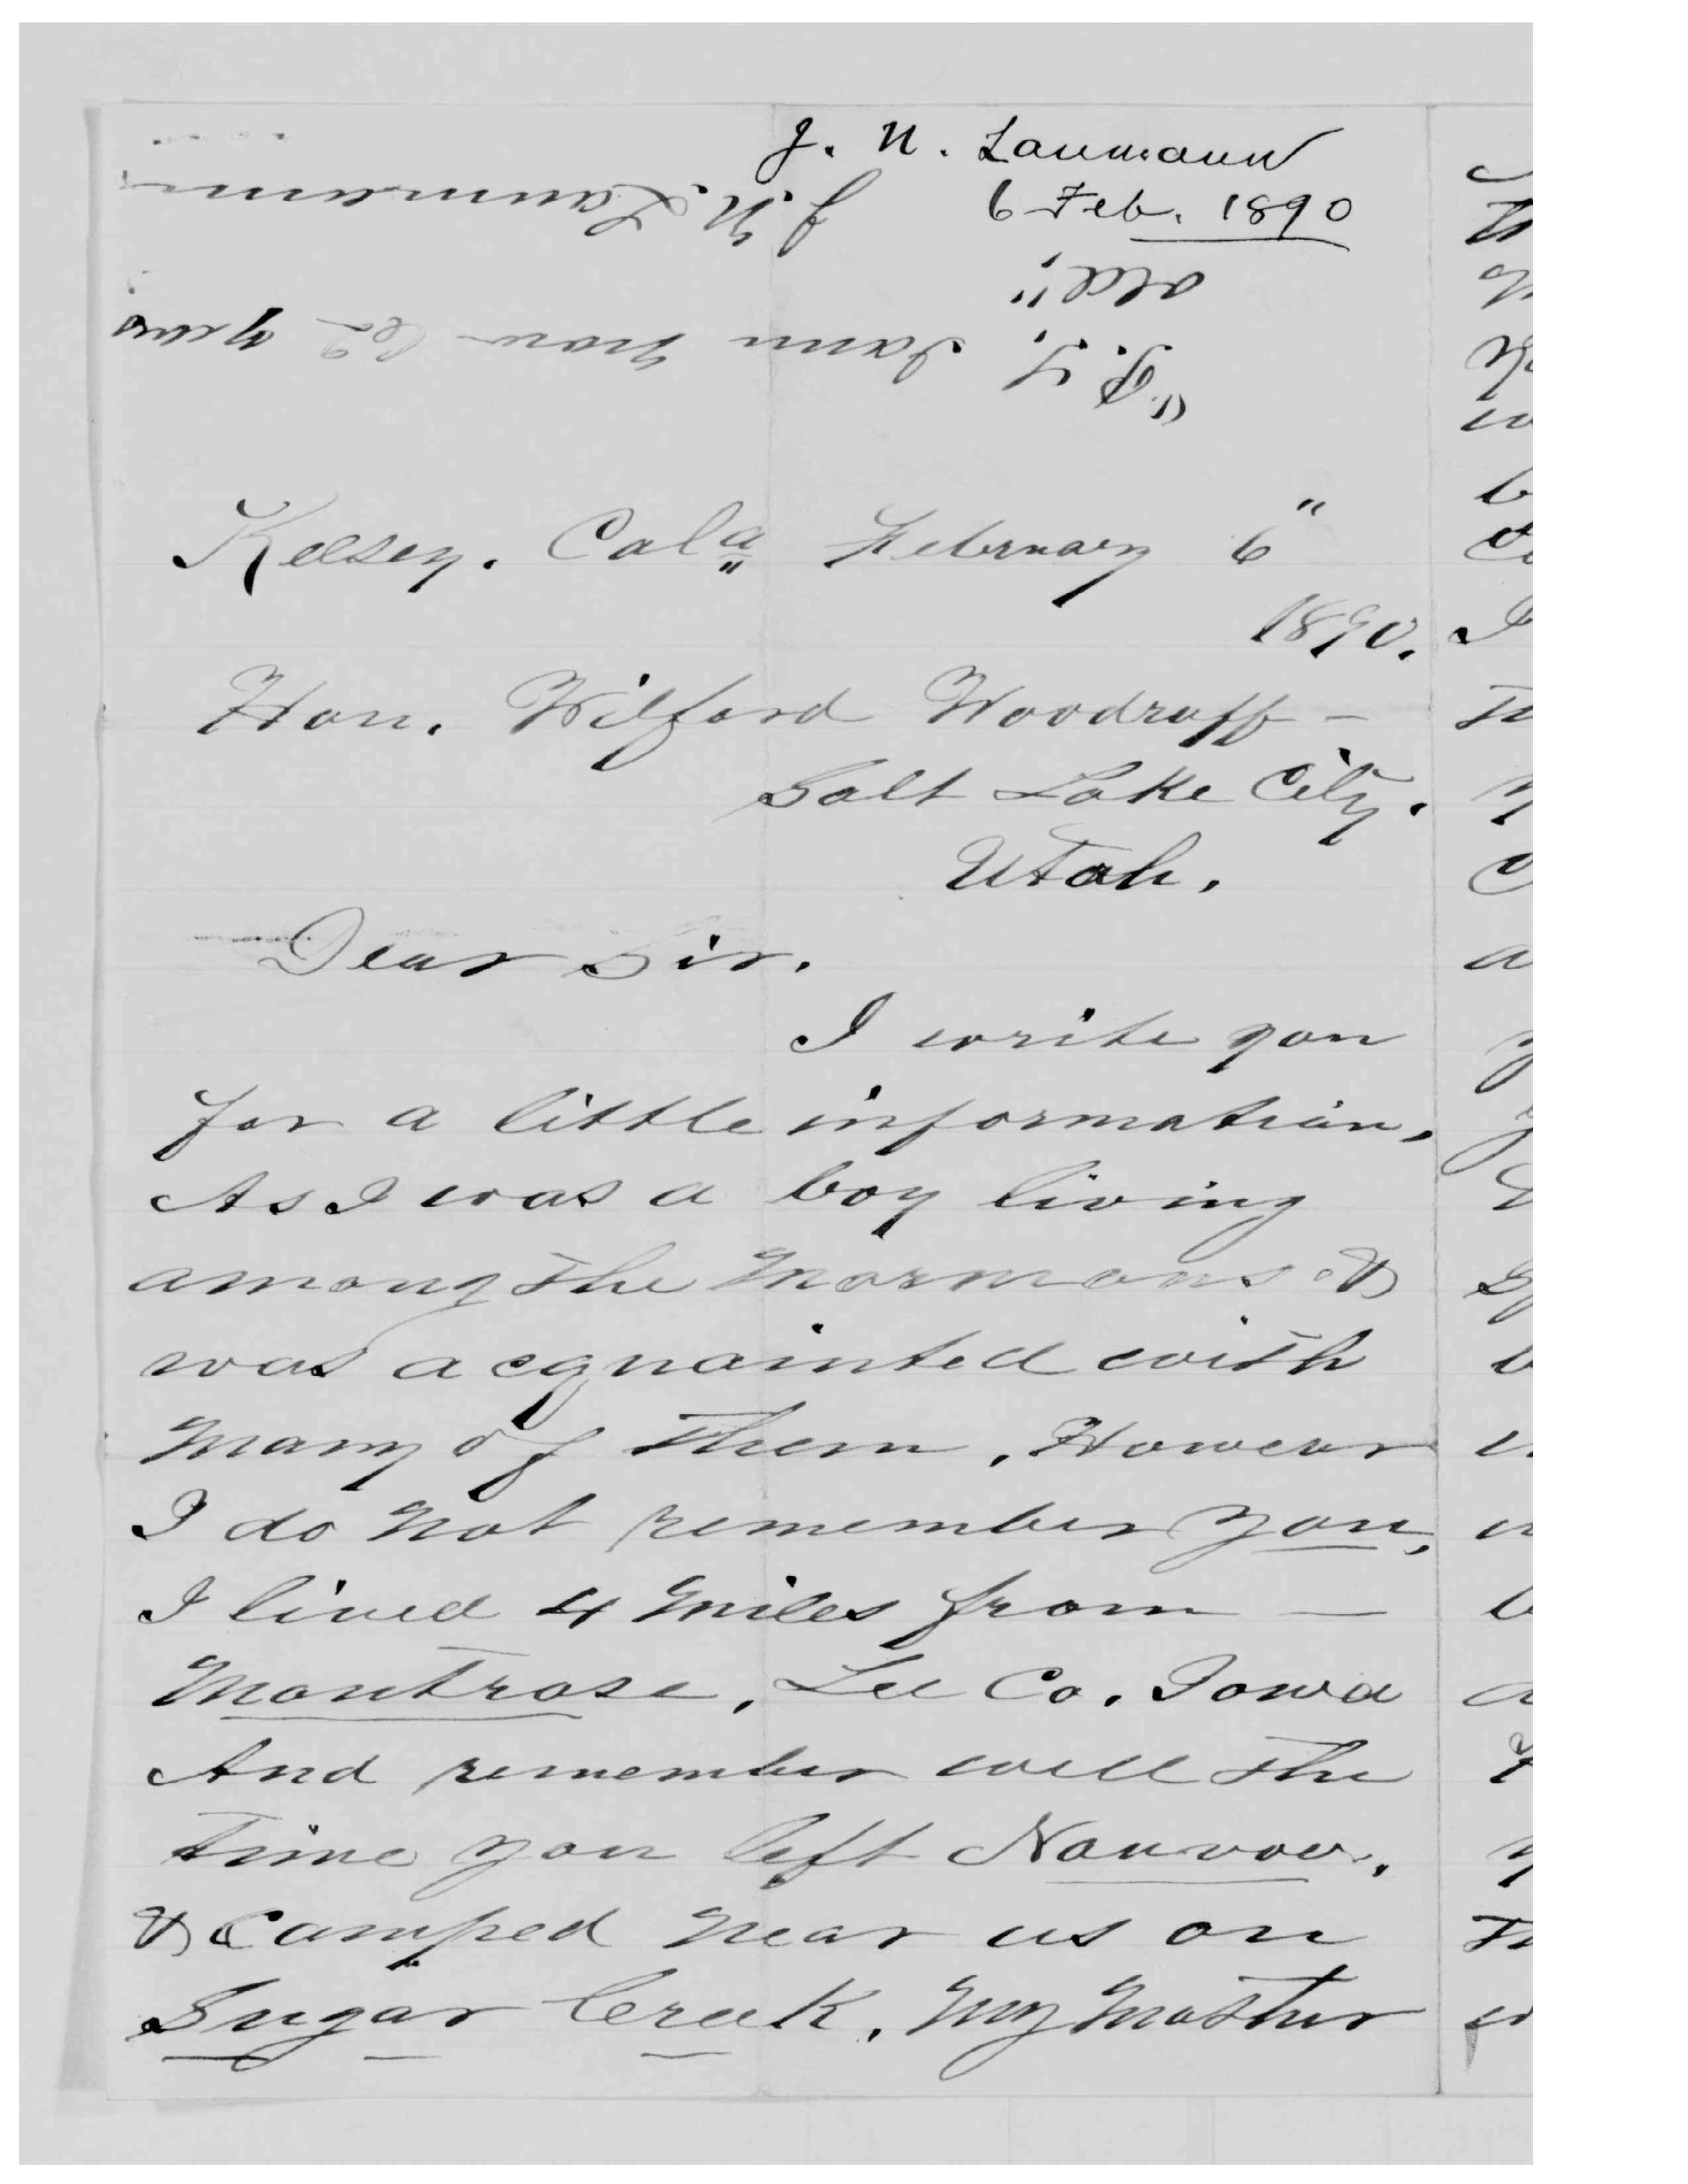 J. N. Laumann
6 Feb. 1890
"P.S. I am now 62 years
old".
J. N. Laumann
Kelsey. Cala February 6"
1890.
Hon. Wilford Woodruff -
Salt Lake City.
Utah.
Dear Sir.
I write you
for a little information,
As I was a boy living
among the Mormons &
was acquainted with
many of Them, However
I do not remember you,
I lived 4 miles from —
Montrose, Lee Co. Iowa
And remember well the
Time you left Nouvoo.,
& Camped near us on
Sugar Creek. My Mother